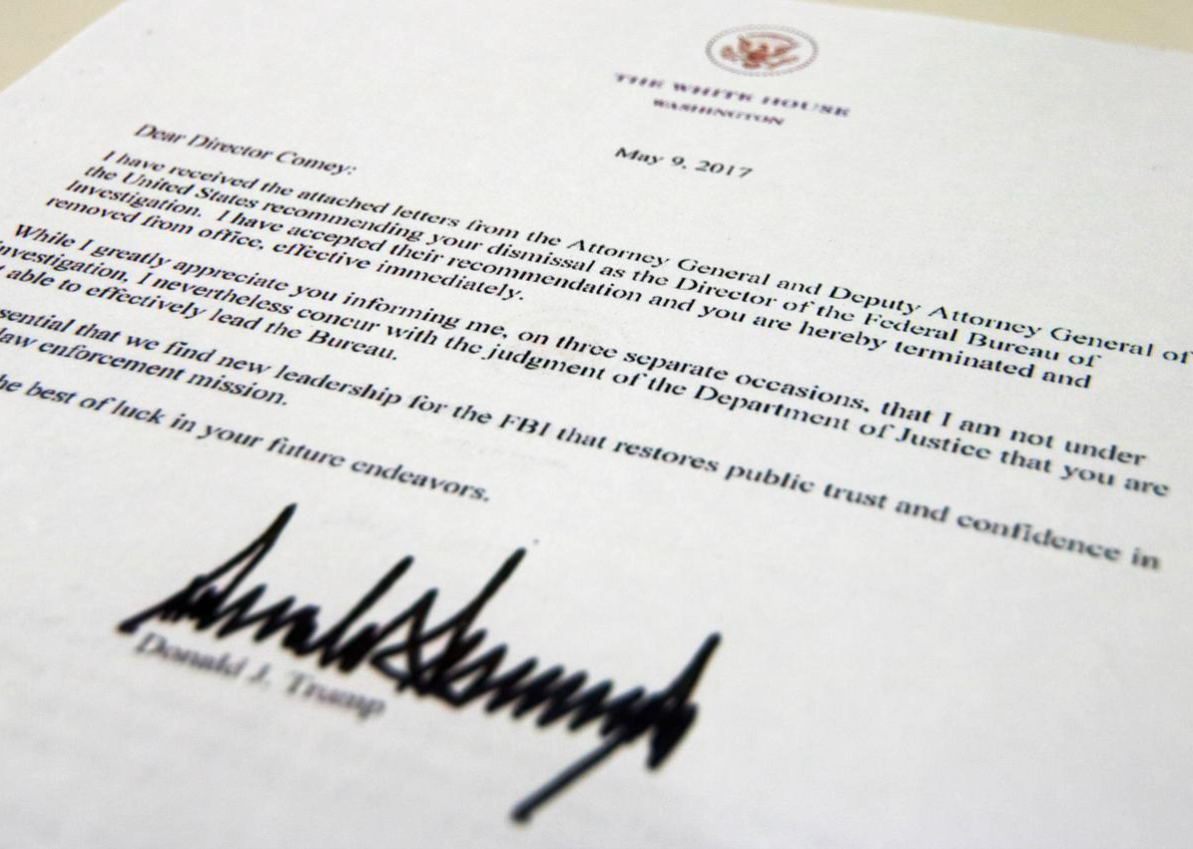 THE WHITE HOUSE
WASHINGTON
May 9, 2017
Dear Director Comey:
I have received the attached letters from the Attorney General and Deputy Attorney General of
the United States recommending your dismissal as the Director of the Federal Bureau of
Investigation. I have accepted their recommendation and you are hereby terminated and
removed from office, effective immediately.
While I greatly appreciate you informing me, on three separate occasions, that I am not under
investigation, I nevertheless concur with the judgment of the Department of Justice that you are
able to effectively lead the Bureau.
sential that we find new leadership for the FBI that restores public trust and confidence in
law enforcement mission.
he best of luck in your future endeavors.
Donald J. Trump